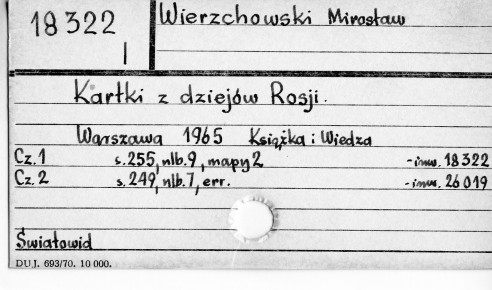 18 322
I
Wierzchowski Mirosław
Kartki z dziejów Rosji.
Warszawa 1965 Książka i Wiedza
Cz. 1 s. 255, nlb. 9, mapy 2 - inw. 18 322
Cz. 2 s. 249, nlb. 7, err. - inw. 26 019
Światowid
DUJ. 693/70. 10 000.